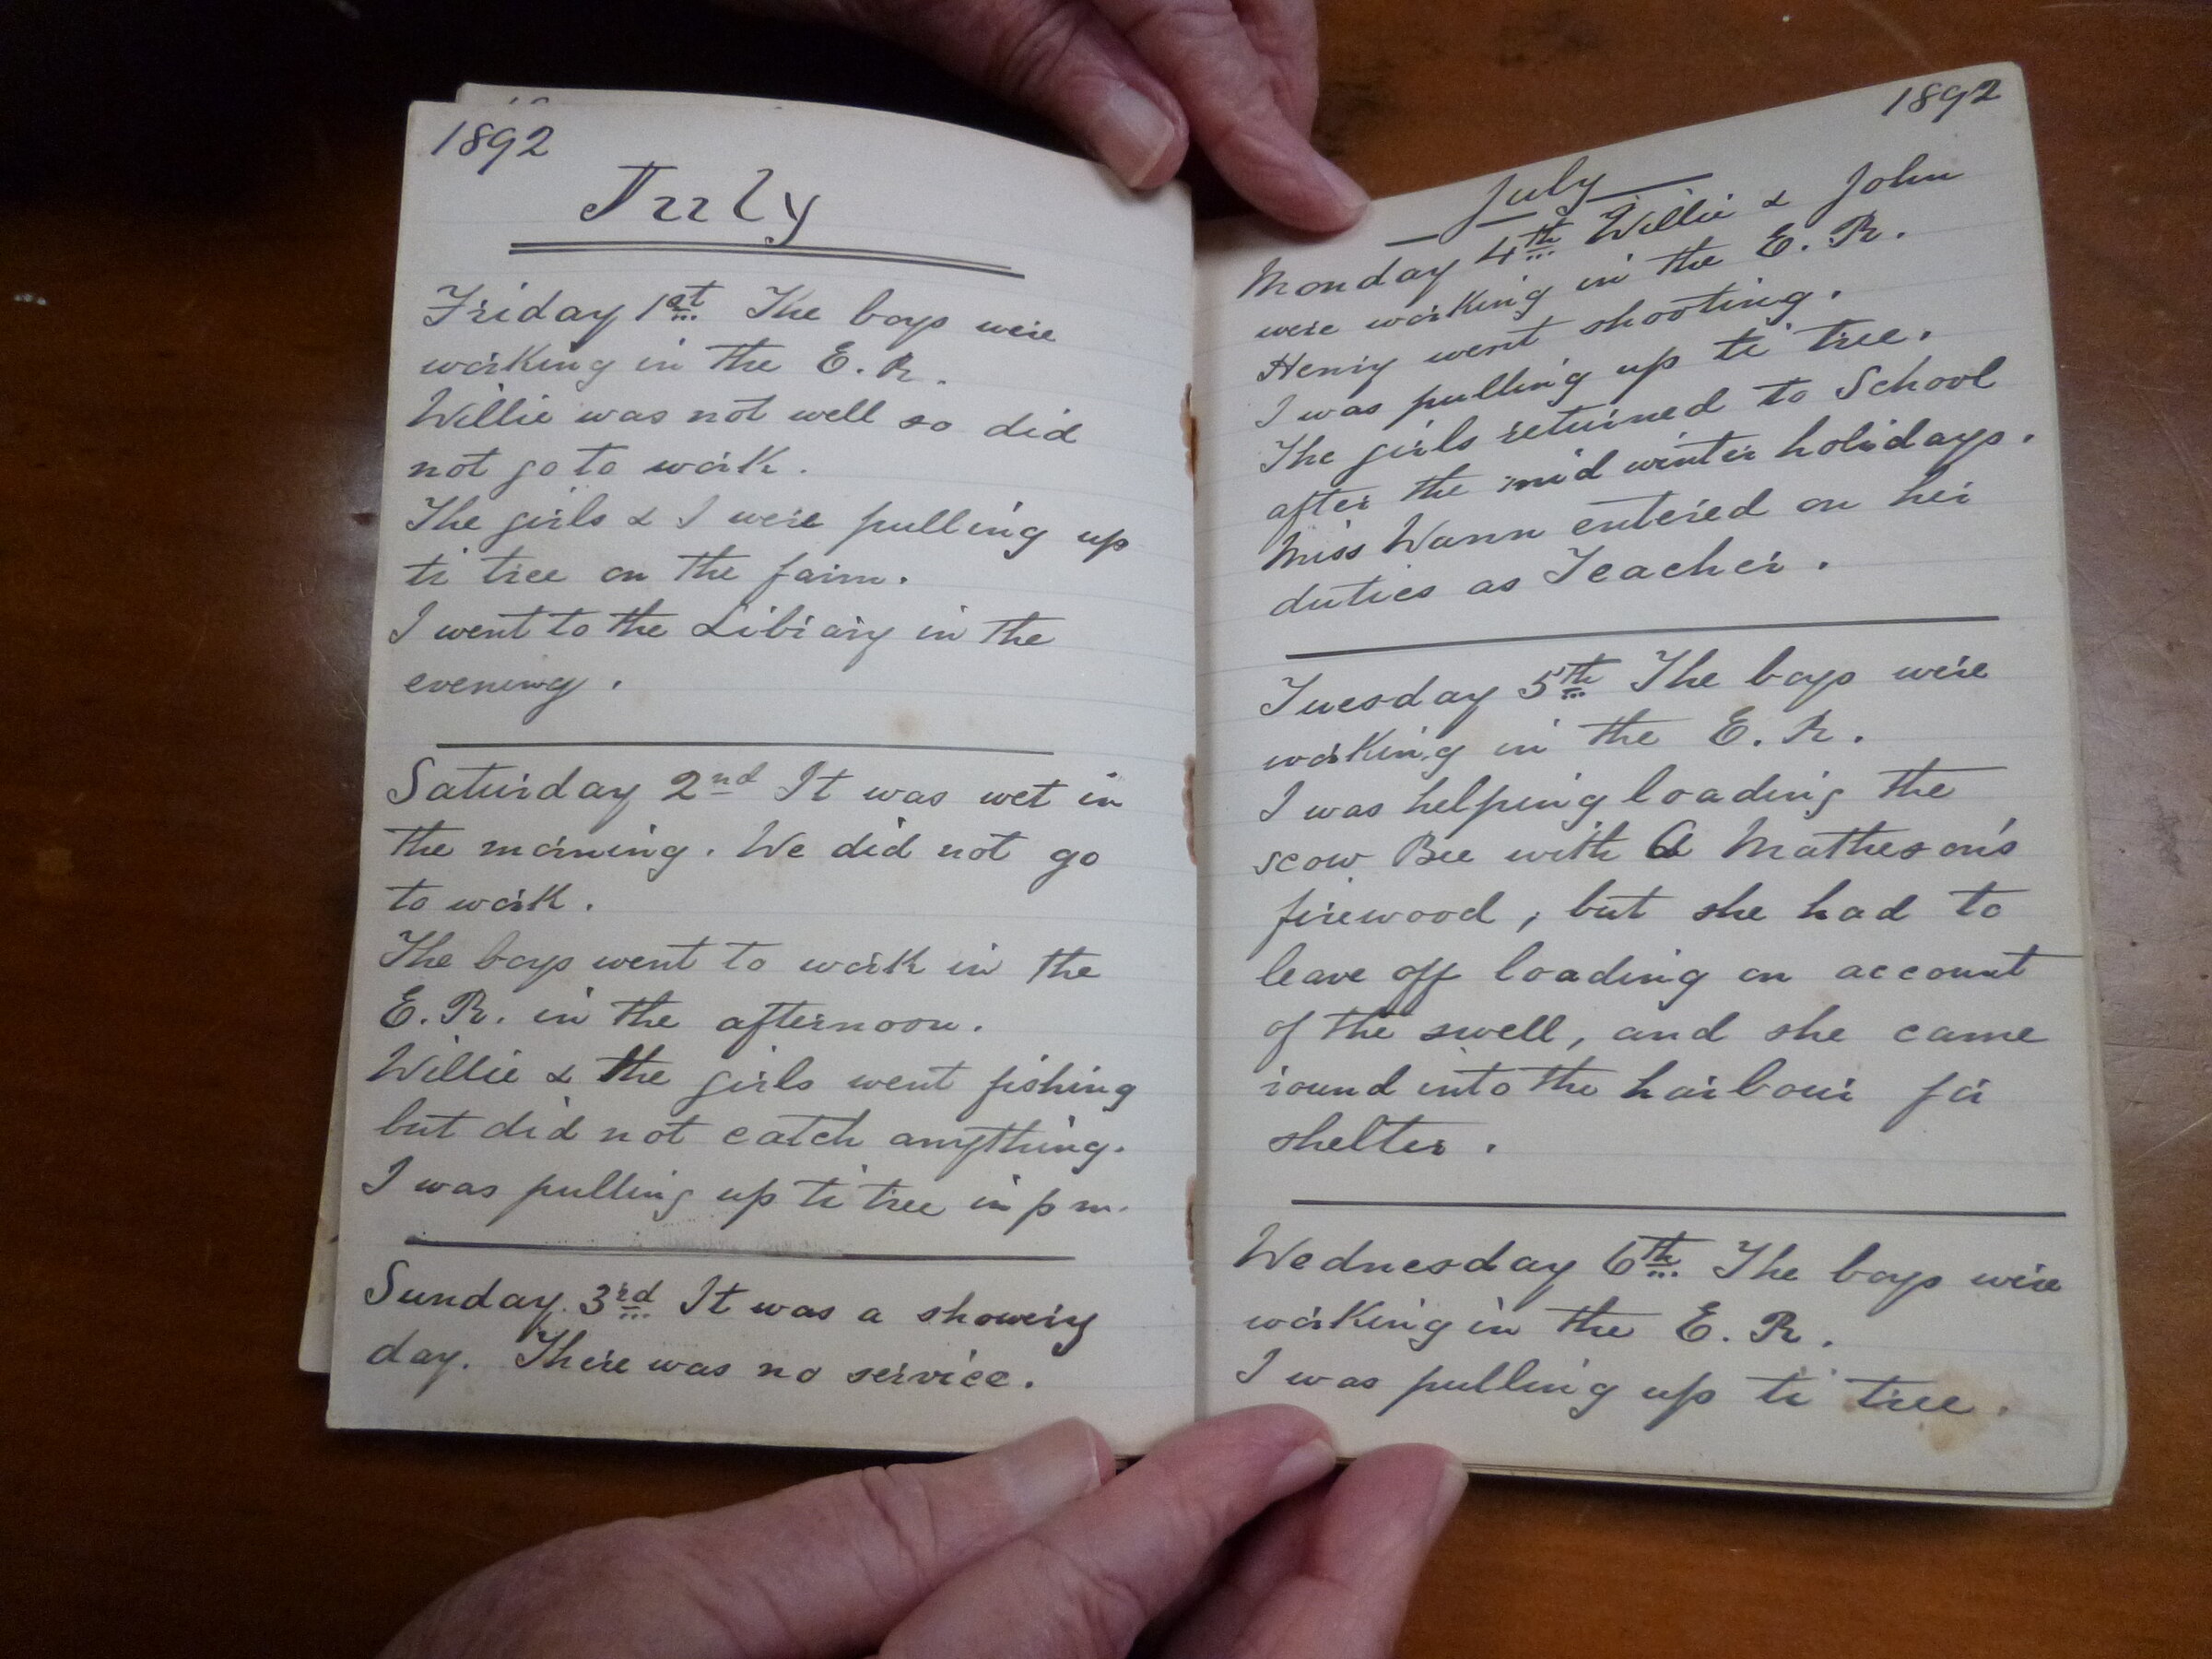 1892
July
Friday 1st The boys were
working in the E. R.
Willie was not well so did
not go to work.
The girls & I were pulling up
ti tree on the farm.
I went to the Library in the
evening.
Saturday 2nd It was wet in
the morning. We did not go
to work.
The boys went to work in the
E. R. in the afternoon.
Willie & the girls went fishing
but did not catch anything.
I was pulling up ti tree in p m.
Sunday. 3rd It was a showery
day. There was no service.
1892
July
Monday 4th Willie & John
were working in the E. R.
Henry went shooting.
I was pulling up ti tree.
The girls returned to School
after the mid winter holidays.
Miss Wann entered on her
duties as Teacher.
Tuesday 5th The boys were
working in the E. R.
I was helping loading the
scow Bee with A Matheson's
firewood, but she had to
leave off loading on account
of the swell, and she came
round into the harbour for
shelter.
Wednesday 6th The boys were
working in the E. R.
I was pulling up ti tree.